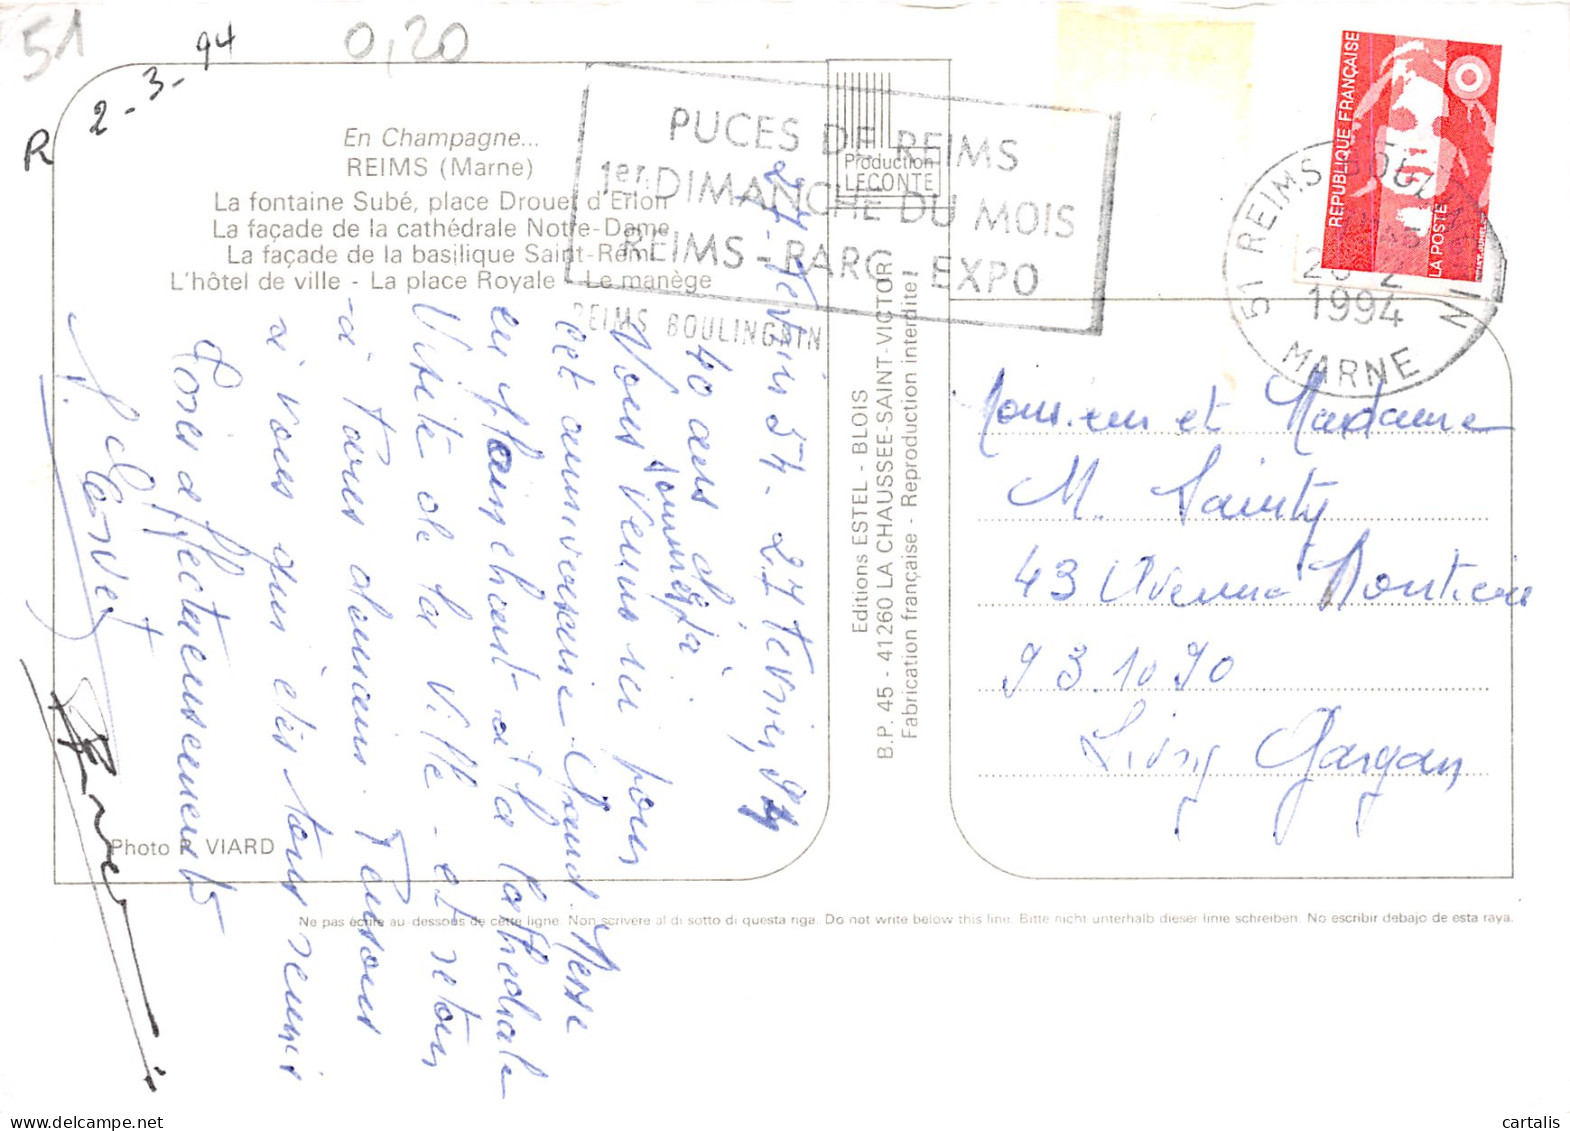 51
0,20
R 2-3-94
En Champagne...
REIMS (Marne)
La fontaine Subé, place Drouet d'Erlon
La façade de la cathédrale Notre-Dame
La façade de la basilique Saint-Remi
L'hôtel de ville - La place Royale - Le manège
PUCES DE REIMS
1er DIMANCHE DU MOIS
REIMS - PARC - EXPO
REIMS BOULINGRIN
Production
LECONTE
RÉPUBLIQUE FRANÇAISE
LA POSTE
51 REIMS BOULINGRIN
1994
MARNE
27 Février 54 - 27 février 94
40 ans déjà
Nous sommes
venus ici pour
cet anniversaire Grand Messe
en plain chant à la Cathédrale
Visite de la ville - et retour
à Tours demain. Pensons
à vous qui êtes tous réunis
affectueusement
Editions ESTEL - BLOIS
B.P. 45 - 41260 LA CHAUSSEE-SAINT-VICTOR
Fabrication française - Reproduction interdite
Monsieur et Madame
M. Sainty
43 Avenue
93.1090
Livry Gargan
Photo P. VIARD
Ne pas écrire au-dessous de cette ligne. Non scrivere al di sotto di questa riga. Do not write below this line. Bitte nicht unterhalb dieser linie schreiben. No escribir debajo de esta raya.
cartalis.com